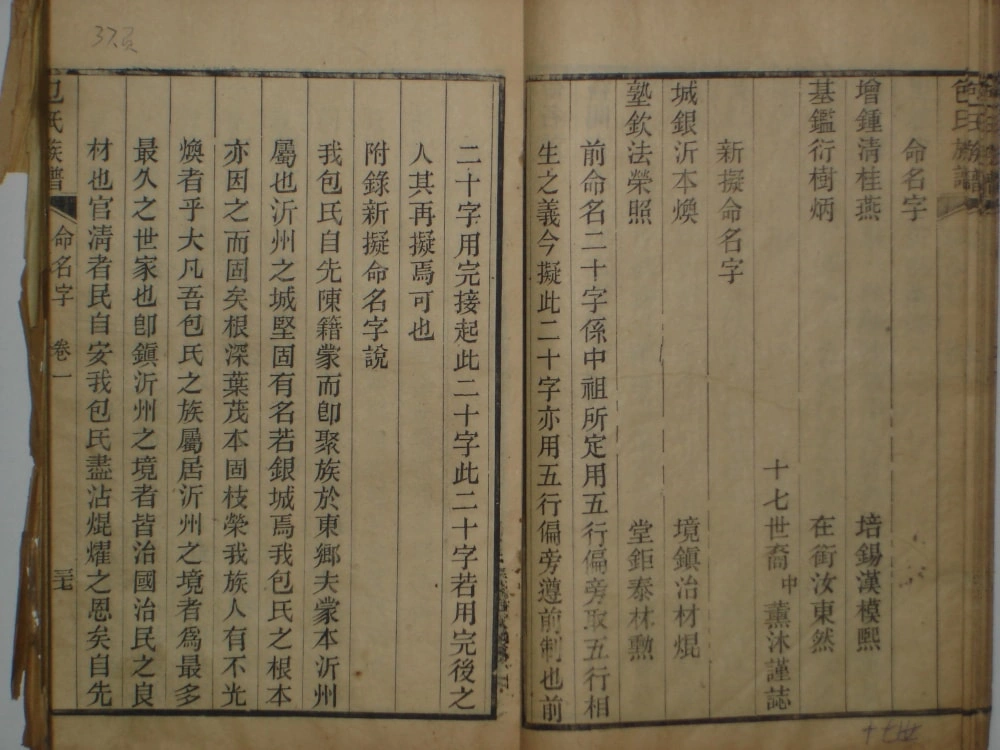 包氏族譜
命名字
增鍾清桂燕 培錫漢模熙
基鑑衍樹炳 在銜汝東然
十七世裔中薰沐謹誌
新擬命名字
城銀沂本煥 境鎮治材焜
塾欽法榮照 堂鉅泰林勲
前命名二十字係中祖所定用五行偏旁取五行相
生之義今擬此二十字亦用五行偏旁遵前制也前
二十字用完接起此二十字此二十字若用完後之
人其再擬焉可也
附錄新擬命名字說
我包氏自先陳籍蒙而卽聚族於東鄉夫蒙本沂州
屬也沂州之城堅固有名若銀城焉我包氏之根本
亦因之而固矣根深葉茂本固枝榮我族人有不光
煥者乎大凡吾包氏之族屬居沂州之境者為最多
最久之世家也卽鎮沂州之境者皆治國治民之良
材也官清者民自安我包氏盡沾焜燿之恩矣自先
包氏族譜 命名字 卷一 三十七
37頁